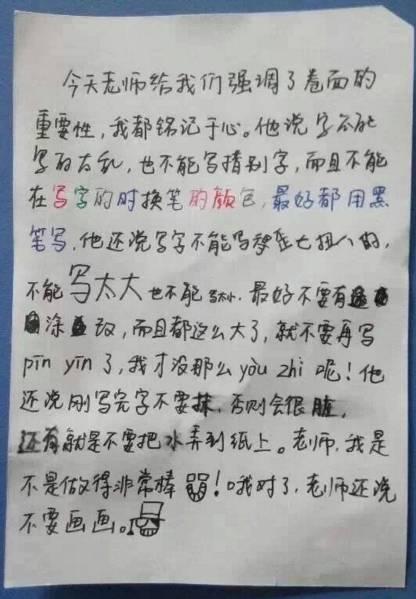 今天老师给我们强调了卷面的
重要性，我都铭记于心。他说字不能
写的太乱，也不能写错别字，而且不能
在写字的时换笔的颜色，最好都用黑
笔写，他还说写字不能写歪七扭八的，
不能写太大也不能写太小，最好不要有
涂改，而且都这么大了，就不要再写
pīn yīn了，我才没那么yòu zhì呢！他
还说刚写完字不要抹，否则会很脏，
还有就是不要把水弄到纸上。老师，我是
不是做得非常棒！哦对了，老师还说
不要画画。